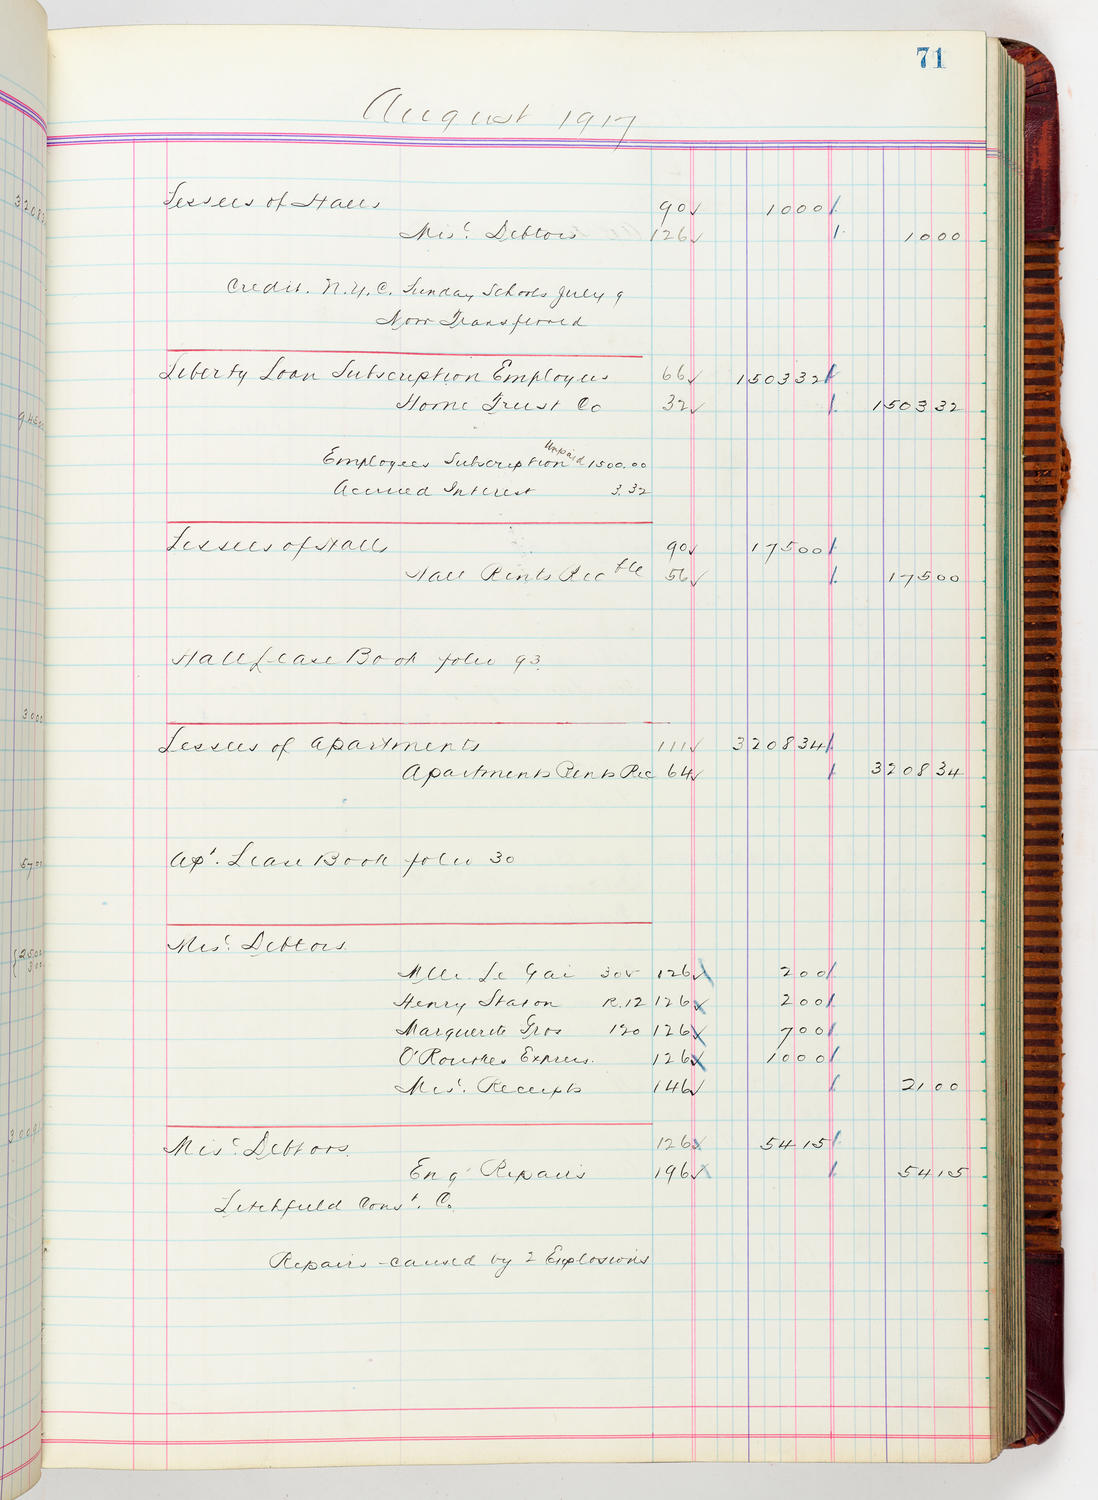 71
August 1917
Lessees of Halls 90 1000
Misc. Debtors 126 1000
Credit. N.Y.C. Sunday Schools July 9
Now Transferred
Liberty Loan Subscription Employees 66 150332
Home Trust Co 32 150332
Employees Subscription Unpaid 1500.00
Accrued Interest 3.32
Lessees of Halls 90 17500
Hall Rents Recble 56 17500
Hall Lease Book folio 93
Lessees of Apartments 111 320834
Apartments Rents Rec 64 320834
Apt. Lease Book folio 30
Misc. Debtors
Mlle. Le Gai 126 200
Henry Stason R.12 126 200
Marguerite Gros 120 126 700
O'Rourkes Express. 126 1000
Misc. Receipts 146 2100
Misc. Debtors 126 5415
Eng Repairs 196 5415
Litchfield Cons't. Co.
Repairs caused by 2 Explosions